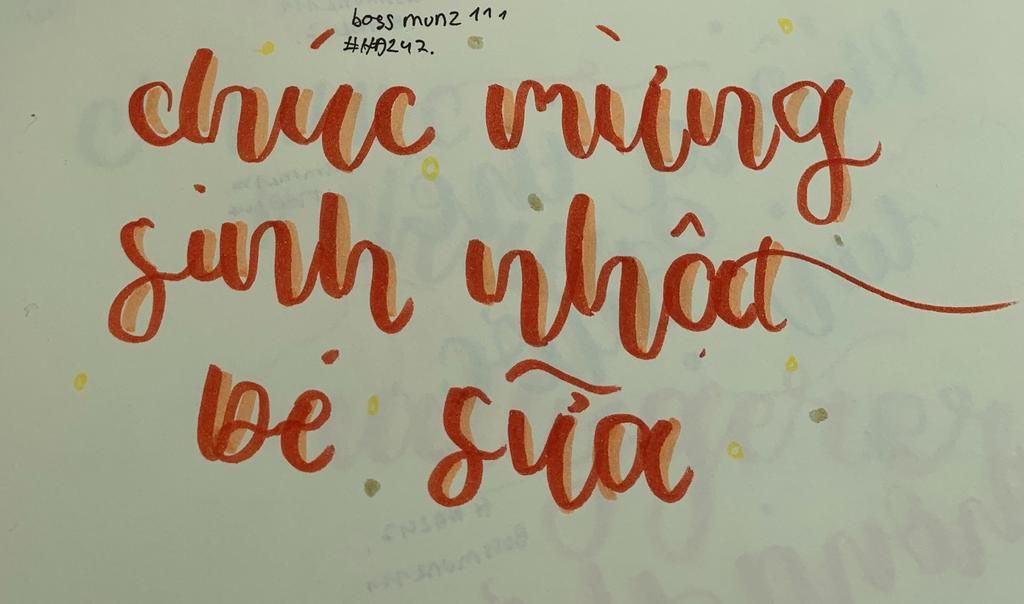 boss munz 111
#HA242.
chúc mừng
sinh nhật
bé sữa